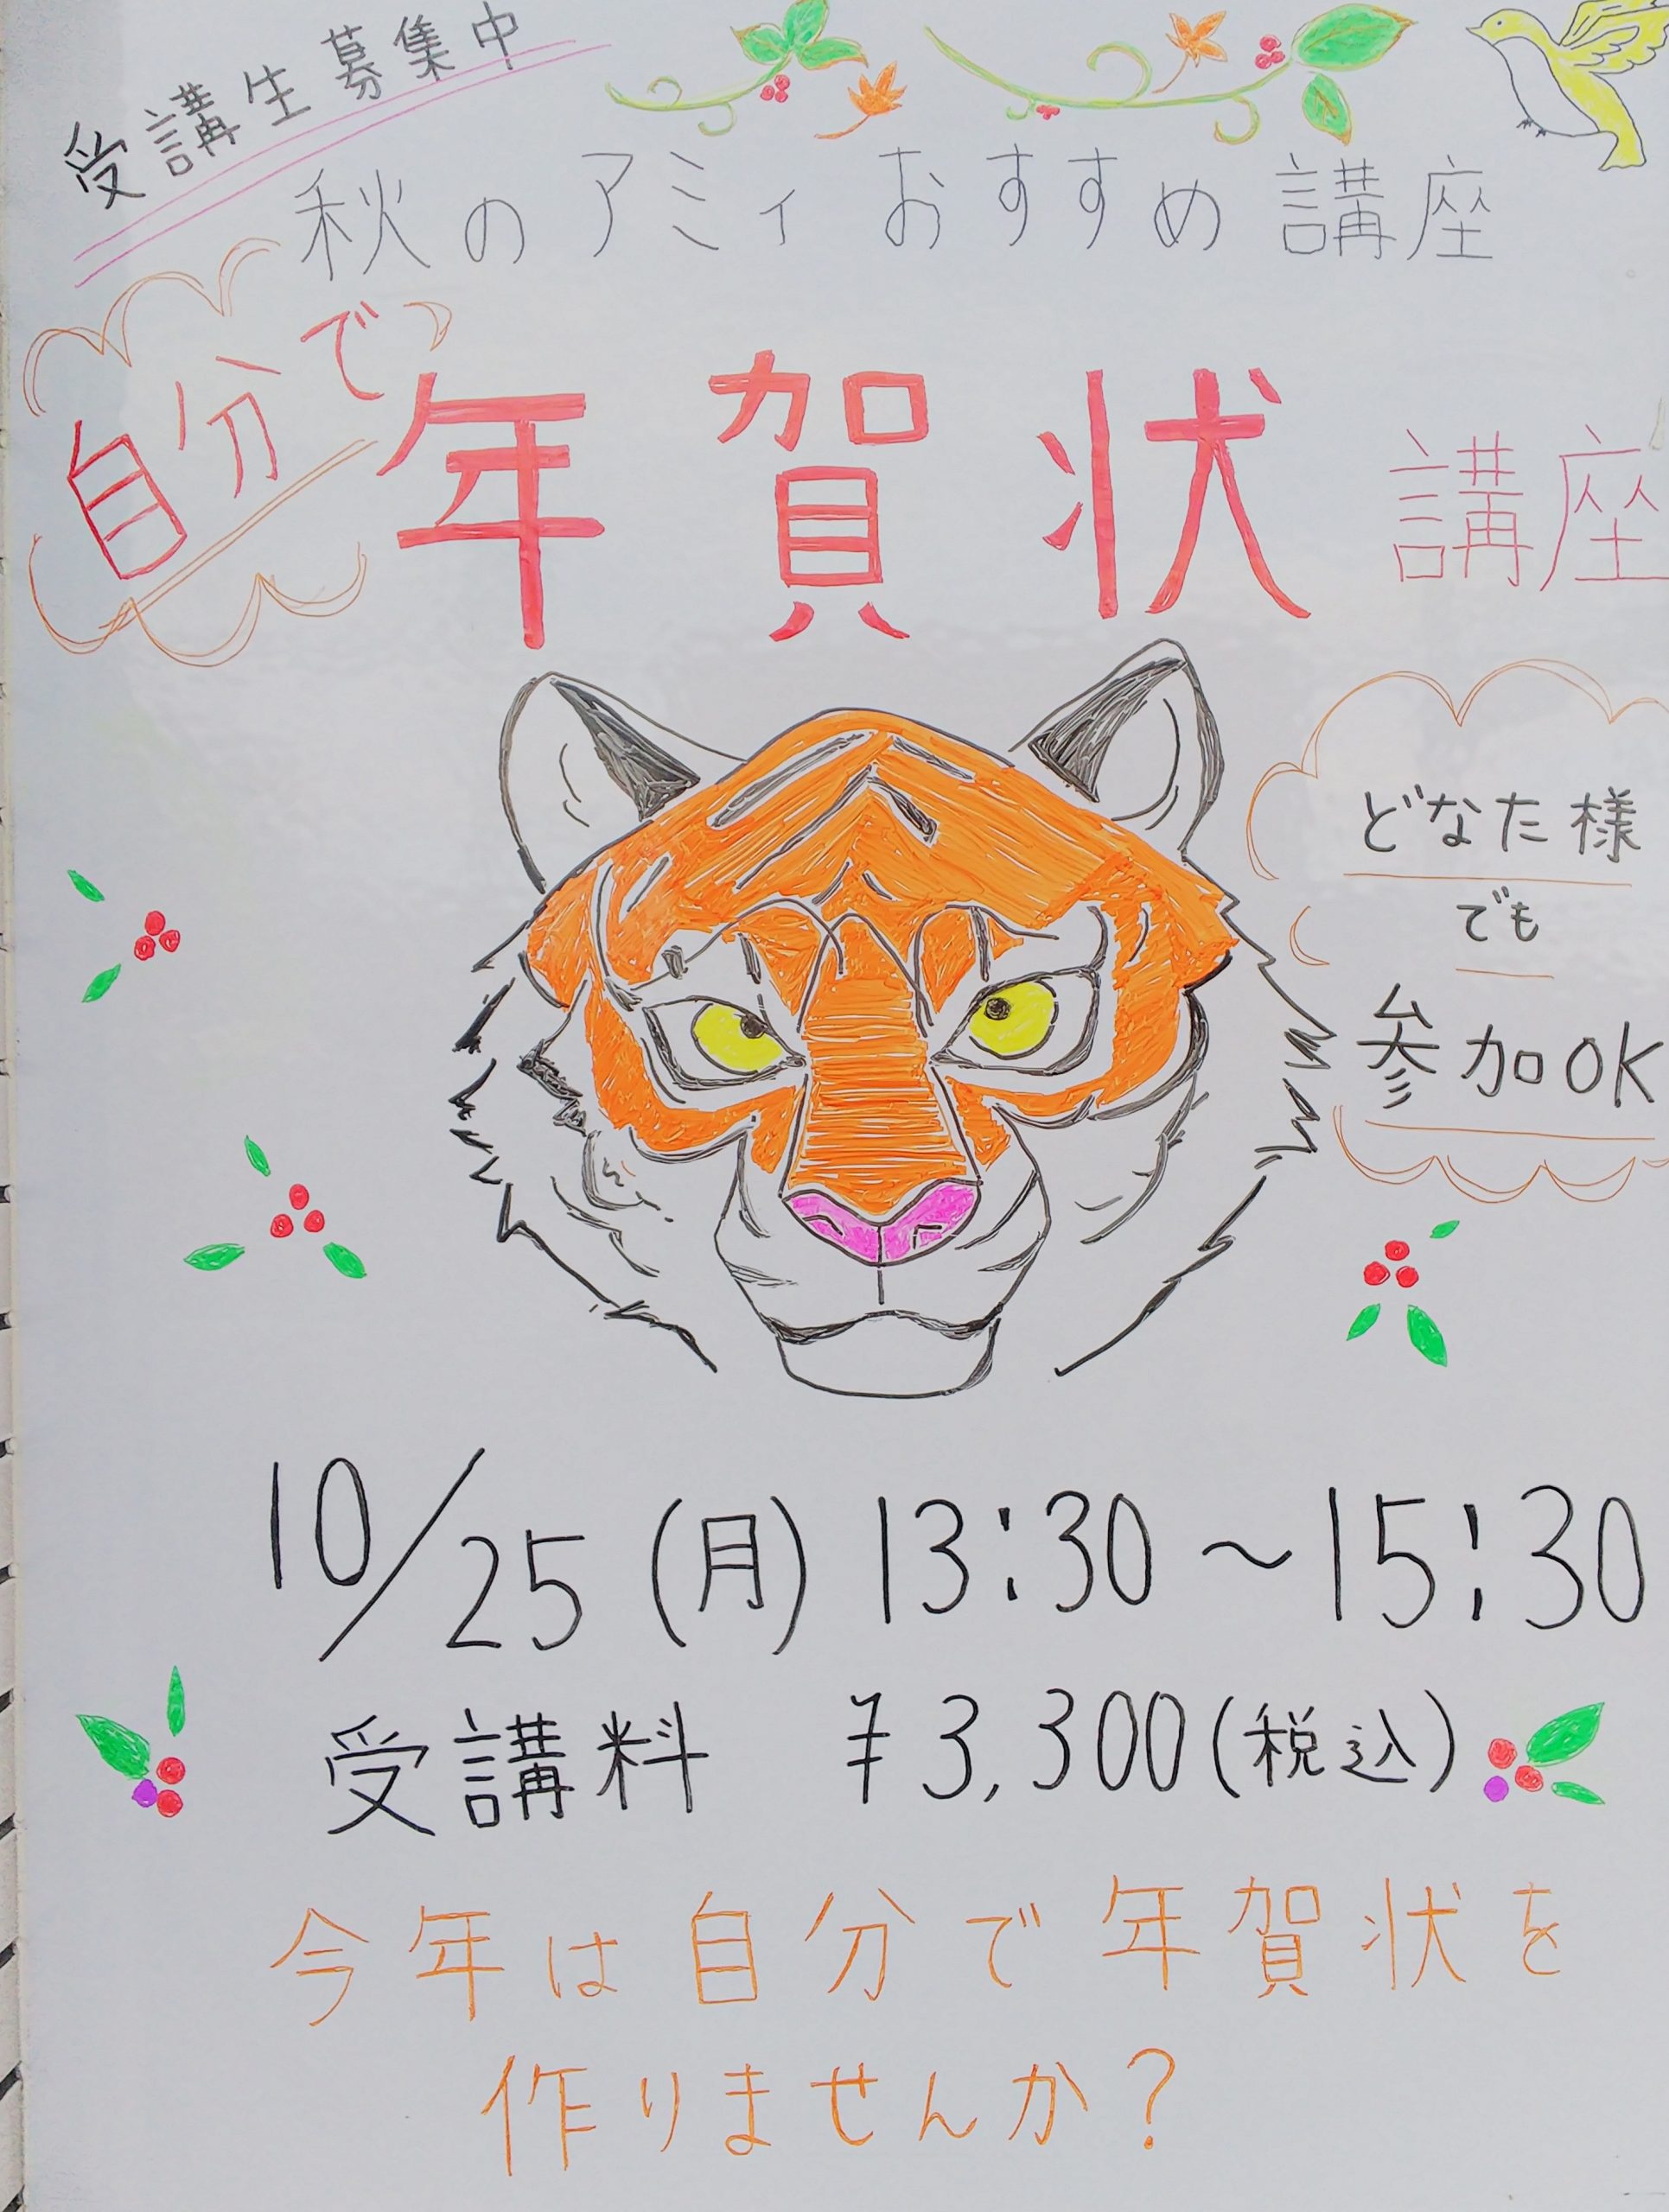 受講生募集中
秋のアミィおすすめ講座
自分で
年賀状講座
どなた様
でも
参加OK
10/25(月) 13:30～15:30
受講料 ¥3,300(税込)
今年は自分で年賀状を
作りませんか?